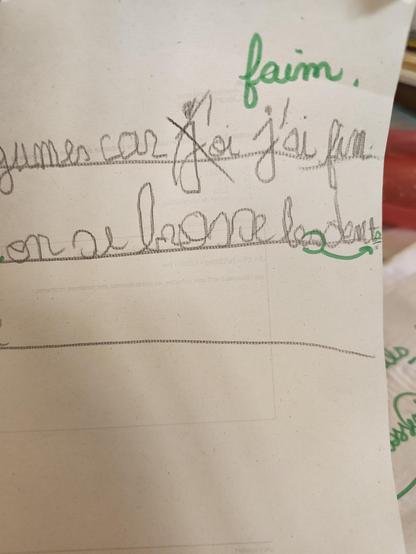 faim.
gumes car j'ai j'ai fim.
on se brosse les dents